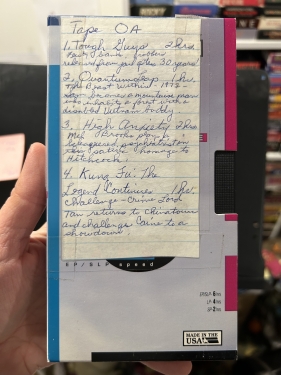 Tape OA
1. Tough Guys 2hrs
bank robbers
released from jail after 30 years
2. Quantum Leap 1hr
The Beast Within - 1972 -
Sam becomes a mountain man
who inhabits a forest with a
disturbed Vietnam buddy
3. High Anxiety 2hrs
Mel Brooks plays a
psychiatrist
satire homage to
Hitchcock.
4. Kung Fu: The
Legend Continues 1hr
Challenge - Crime Lord
Tan returns to Chinatown
and challenge Caine to a
showdown
EP/SLP speed
EP/SLP 6hrs
LP 4hrs
SP 2hrs
MADE IN THE
USA